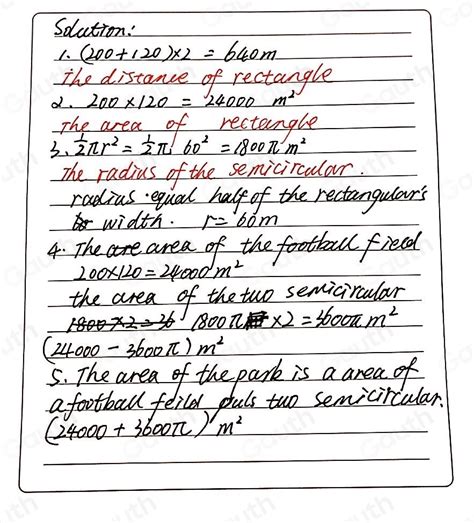 Solution:
1. (200+120)×2 = 640m
The distance of rectangle
2. 200×120 = 24000 m²
The area of rectangle
3. ½πr² = ½π 60² = 1800π m²
The radius of the semicircular.
radius equal half of the rectangular's
width. r = 60m
4. The area of the football field
200×120 = 24000m²
the area of the two semicircular
1800×2=36 1800π ×2 = 3600π m²
(24000 - 3600π) m²
5. The area of the park is a area of
a football feild puls two semicircular.
(24000 + 3600π) m²